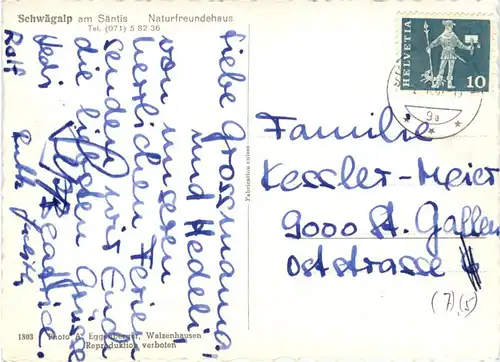 Schwägalp am Säntis Naturfreundehaus
Tel. (071) 5 82 36
Liebe Grossmama!
und Hedeli!
von unseren
herrlichen Ferien
senden wir Euch
die lieben Grüsse
Beatrice
Hedi
Rolf
Ruth
HELVETIA
10
9a
Fabrication suisse
Familie
Kessler-Meier
9000 St. Gallen
Oststrasse
(7)(5)
1803 Photo A. Eggenberger, Walzenhausen
Reproduktion verboten